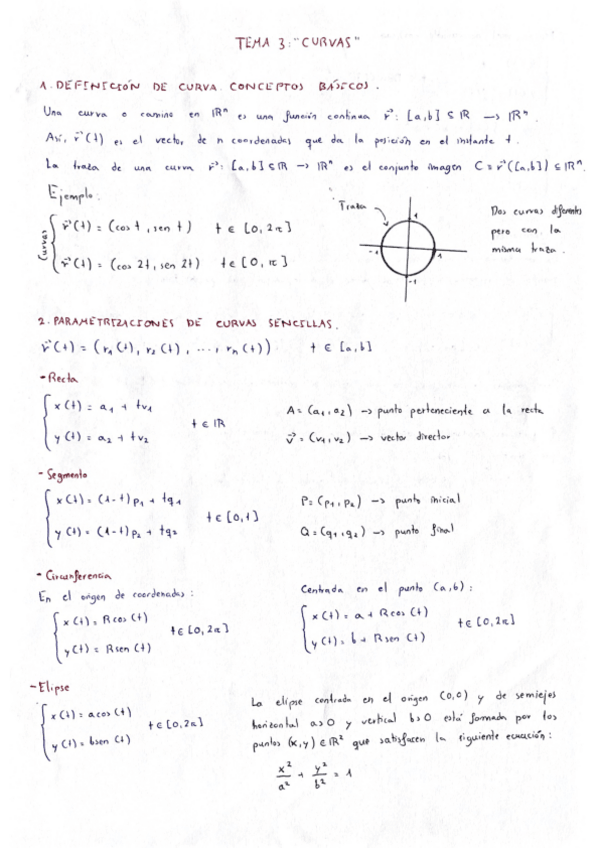 TEMA 3: "CURVAS"
1. DEFINICIÓN DE CURVA. CONCEPTOS BÁSICOS.
Una curva o camino en ℝⁿ es una función continua r⃗: [a,b] ⊆ ℝ → ℝⁿ.
Así, r⃗(t) es el vector de n coordenadas que da la posición en el instante t.
La traza de una curva r⃗: [a,b] ⊆ ℝ → ℝⁿ es el conjunto imagen C = r⃗([a,b]) ⊆ ℝⁿ.
Ejemplo:
Curvas
r⃗(t) = (cos t, sen t) t ∈ [0, 2π]
r⃗(t) = (cos 2t, sen 2t) t ∈ [0, π]
Traza
1
-1
1
-1
Dos curvas diferentes
pero con la
misma traza.
2. PARAMETRIZACIONES DE CURVAS SENCILLAS.
r⃗(t) = (r₁(t), r₂(t), ..., rₙ(t)) t ∈ [a,b]
- Recta
x(t) = a₁ + tv₁
y(t) = a₂ + tv₂
t ∈ ℝ
A = (a₁, a₂) → punto perteneciente a la recta
v⃗ = (v₁, v₂) → vector director
- Segmento
x(t) = (1-t)p₁ + tq₁
y(t) = (1-t)p₂ + tq₂
t ∈ [0,1]
P = (p₁, p₂) → punto inicial
Q = (q₁, q₂) → punto final
- Circunferencia
En el origen de coordenadas:
x(t) = R cos (t)
y(t) = R sen (t)
t ∈ [0, 2π]
Centrada en el punto (a,b):
x(t) = a + R cos (t)
y(t) = b + R sen (t)
t ∈ [0, 2π]
- Elipse
x(t) = a cos (t)
y(t) = b sen (t)
t ∈ [0, 2π]
La elipse centrada en el origen (0,0) y de semiejes
horizontal a>0 y vertical b>0 está formada por los
puntos (x,y) ∈ ℝ² que satisfacen la siguiente ecuación:
x²/a² + y²/b² = 1